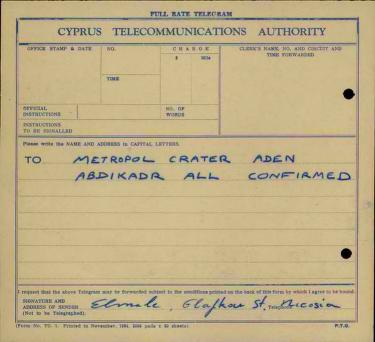 FULL RATE TELEGRAM
CYPRUS TELECOMMUNICATIONS AUTHORITY
OFFICE STAMP & DATE
NO.
CHARGE
CLERK'S NAME, NO. AND CIRCUIT AND TIME FORWARDED
£ Mils
TIME
OFFICIAL INSTRUCTIONS
NO. OF WORDS
INSTRUCTIONS TO BE SIGNALLED
Please write the NAME AND ADDRESS in CAPITAL LETTERS.
TO METROPOL CRATER ADEN
ABDIKADR ALL CONFIRMED
I request that the above Telegram may be forwarded subject to the conditions printed on the back of this form by which I agree to be bound.
SIGNATURE AND
ADDRESS OF SENDER Glafkou St. Nicosia
(Not to be Telegraphed).
(Form No. Printed in November, pads x 50 sheets)
P.T.O.